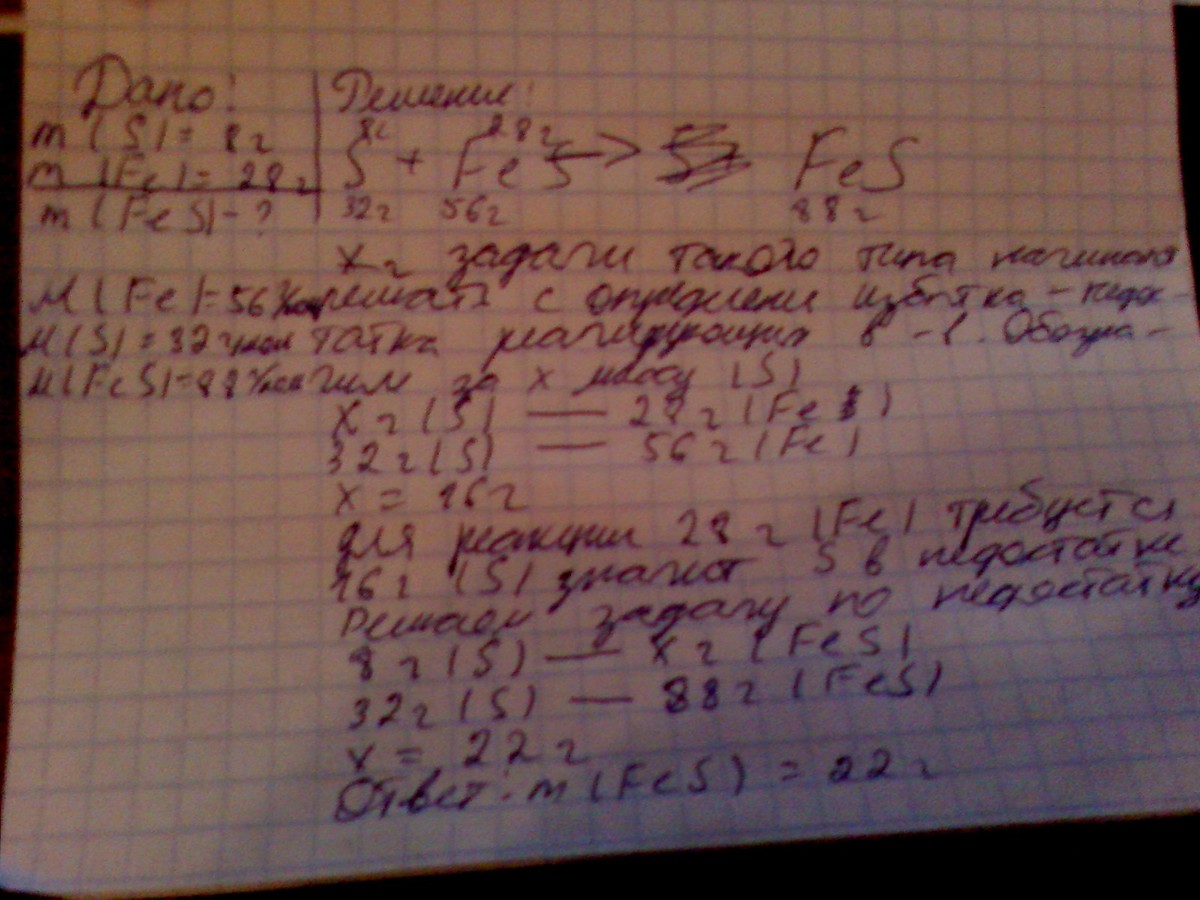 Дано:
m (S) = 8г
m (Fe) = 28г
m (FeS) - ?
M (Fe) = 56г/моль
M (S) = 32г/моль
M (FeS) = 88г/моль
Решение:
8г 28г
S + Fe S → FeS
32г 56г 88г
Xг задачи такого типа начинают
решать с определени избытка - недос-
татка реагирующих в - в. Обозна-
чим за x массу (S)
X г (S) — 28 г (Fe)
32 г (S) — 56 г (Fe)
X = 16 г
Для реакции 28 г (Fe) требуется
16 г (S) значит S в недостатке
Решаем задачу по недостатку
8 г (S) — X г (FeS)
32 г (S) — 88 г (FeS)
x = 22 г
Ответ: m (FeS) = 22 г